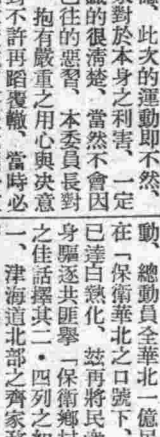 此次的運動即不然、
對於本身之利害、一定
的很清楚、當然不會因
已往的惡習、本委員長對
抱有嚴重之用心與决意
不許再蹈復轍、當時必
動、總動員全華北一億民
在「保衛華北之口號下、
已達白熱化、茲再將民
身驅逐共匪擧「保衛鄉村
之佳話擇其二・四列之如
一、津海道北部之齊家務